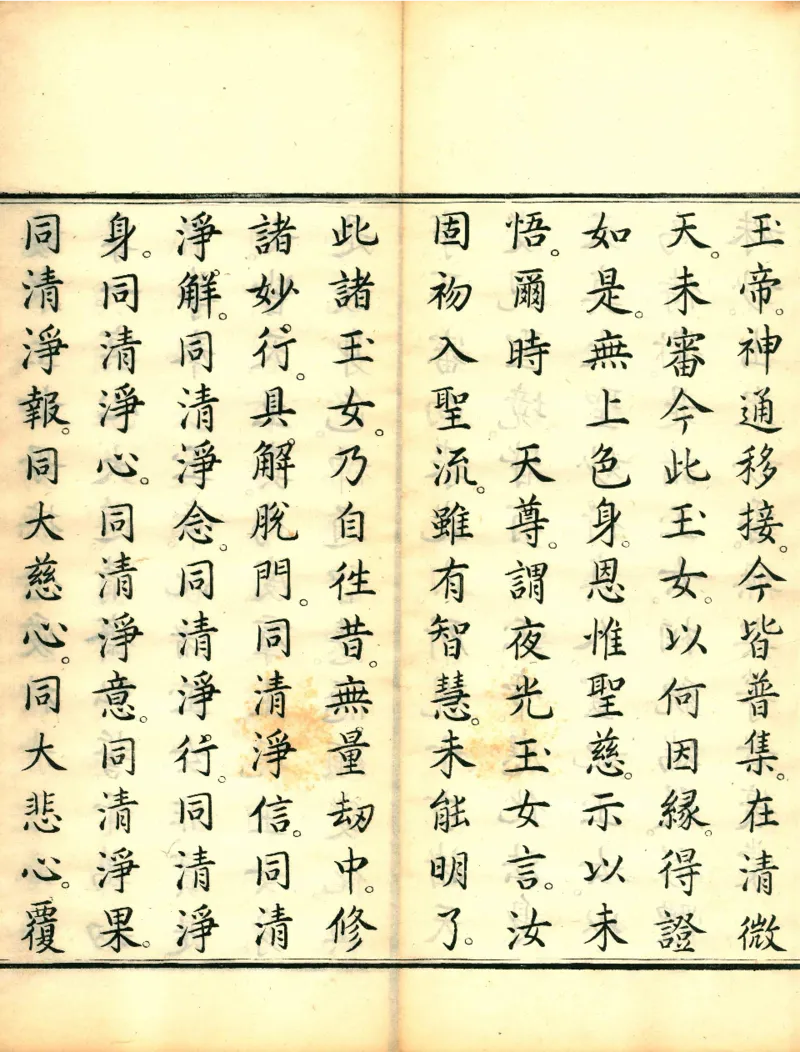 玉帝。神通移接。今皆普集。在清微
天。未審今此玉女。以何因縁。得證
如是。無上色身。恩惟聖慈。示以未
悟。爾時　天尊。謂夜光玉女言。汝
固初入聖流。雖有智慧。未能明了。
此諸玉女。乃自徃昔。無量劫中。修
諸妙行。具解脫門。同清淨信。同清
淨解。同清淨念。同清淨行。同清淨
身。同清淨心。同清淨意。同清淨果。
同清淨報。同大慈心。同大悲心。覆